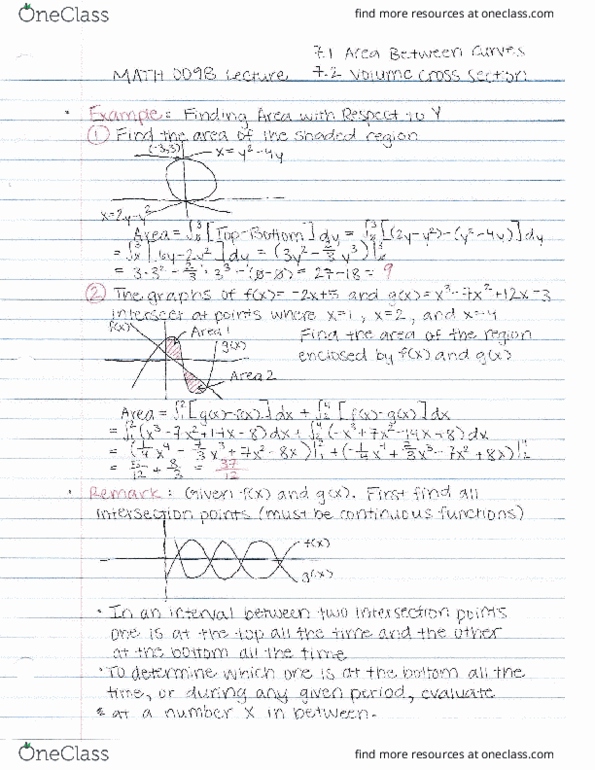 OneClass
find more resources at oneclass.com
7.1 Area Between Curves
MATH 0098 Lecture 7.2 Volume Cross Section
Example: Finding Area with Respect to Y
① Find the area of the shaded region
(-3,3) x=y²-4y
x=2y-y²
Area = ∫₀³[Top-Bottom]dy = ∫₀³[(2y-y²)-(y²-4y)]dy
= ∫₀³[6y-2y²]dy = (3y²-2/3y³)|₀³
= 3·3²-2/3·3³-(0-0) = 27-18 = 9
② The graphs of f(x)=-2x+5 and g(x)=x³-7x²+12x-3
intersect at points where x=1, x=2, and x=4
f(x) Area 1 Find the area of the region
g(x) enclosed by f(x) and g(x)
Area 2
Area = ∫₁²[g(x)-f(x)]dx + ∫₂⁴[f(x)-g(x)]dx
= ∫₁²(x³-7x²+14x-8)dx + ∫₂⁴(-x³+7x²-14x+8)dx
= (1/4x⁴-7/3x³+7x²-8x)|₁²+(-1/4x⁴+7/3x³-7x²+8x)|₂⁴
= 5/12 + 8/3 = 37/12
Remark: Given f(x) and g(x). First find all
intersection points (must be continuous functions)
f(x)
g(x)
• In an interval between two intersection points
one is at the top all the time and the other
at the bottom all the time
• To determine which one is at the bottom all the
time, or during any given period, evaluate
at a number x in between.
OneClass
find more resources at oneclass.com